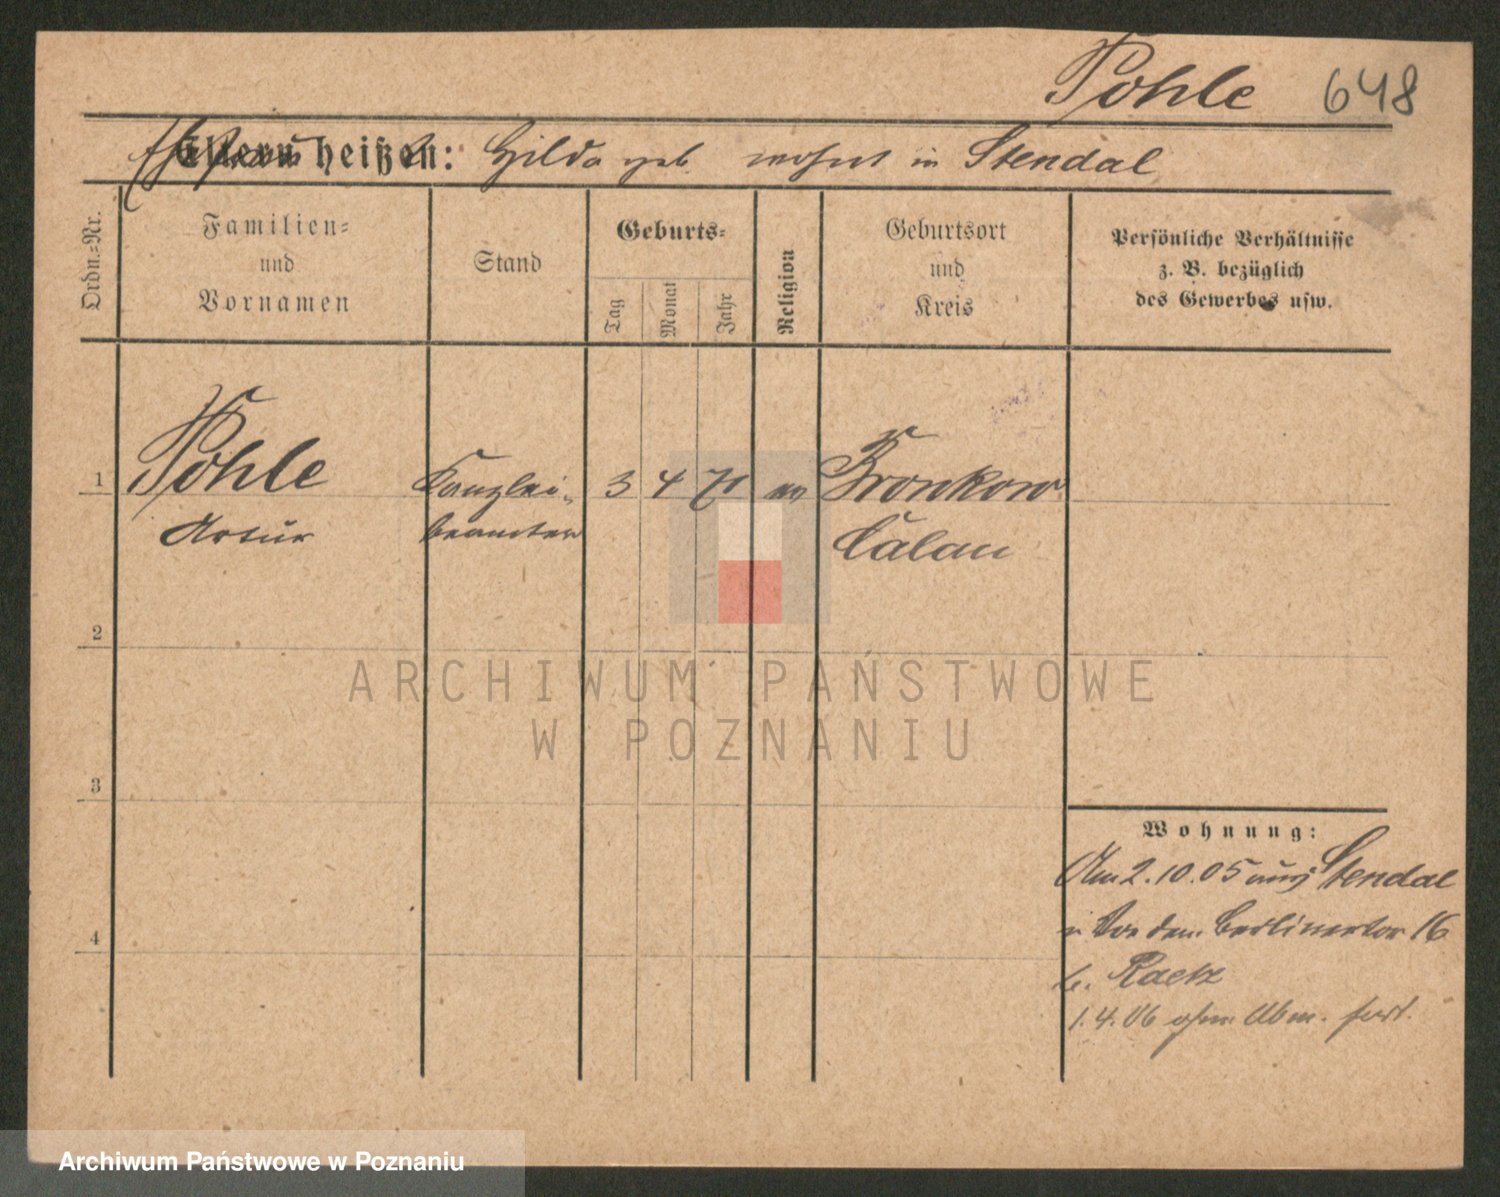 Pohle 648
Ehefrau
Eltern heißen: Hilda geb. wohnt in Stendal
Ordn.-Nr.
Familien-
und
Vornamen
Stand
Geburts-
Tag
Monat
Jahr
Religion
Geburtsort
und
Kreis
Persönliche Verhältnisse
z. B. bezüglich
des Gewerbes usw.
1 Pohle Kanzlei- 3 4 71 ev Bronkow
Artur beamter Calau
2
3
4
Wohnung:
Am 2.10.05 aus Stendal
n Vor dem Berlinertor 16
b. Raetz
1.4.06 ohne Abm. fort.
ARCHIWUM PAŃSTWOWE
W POZNANIU
Archiwum Państwowe w Poznaniu